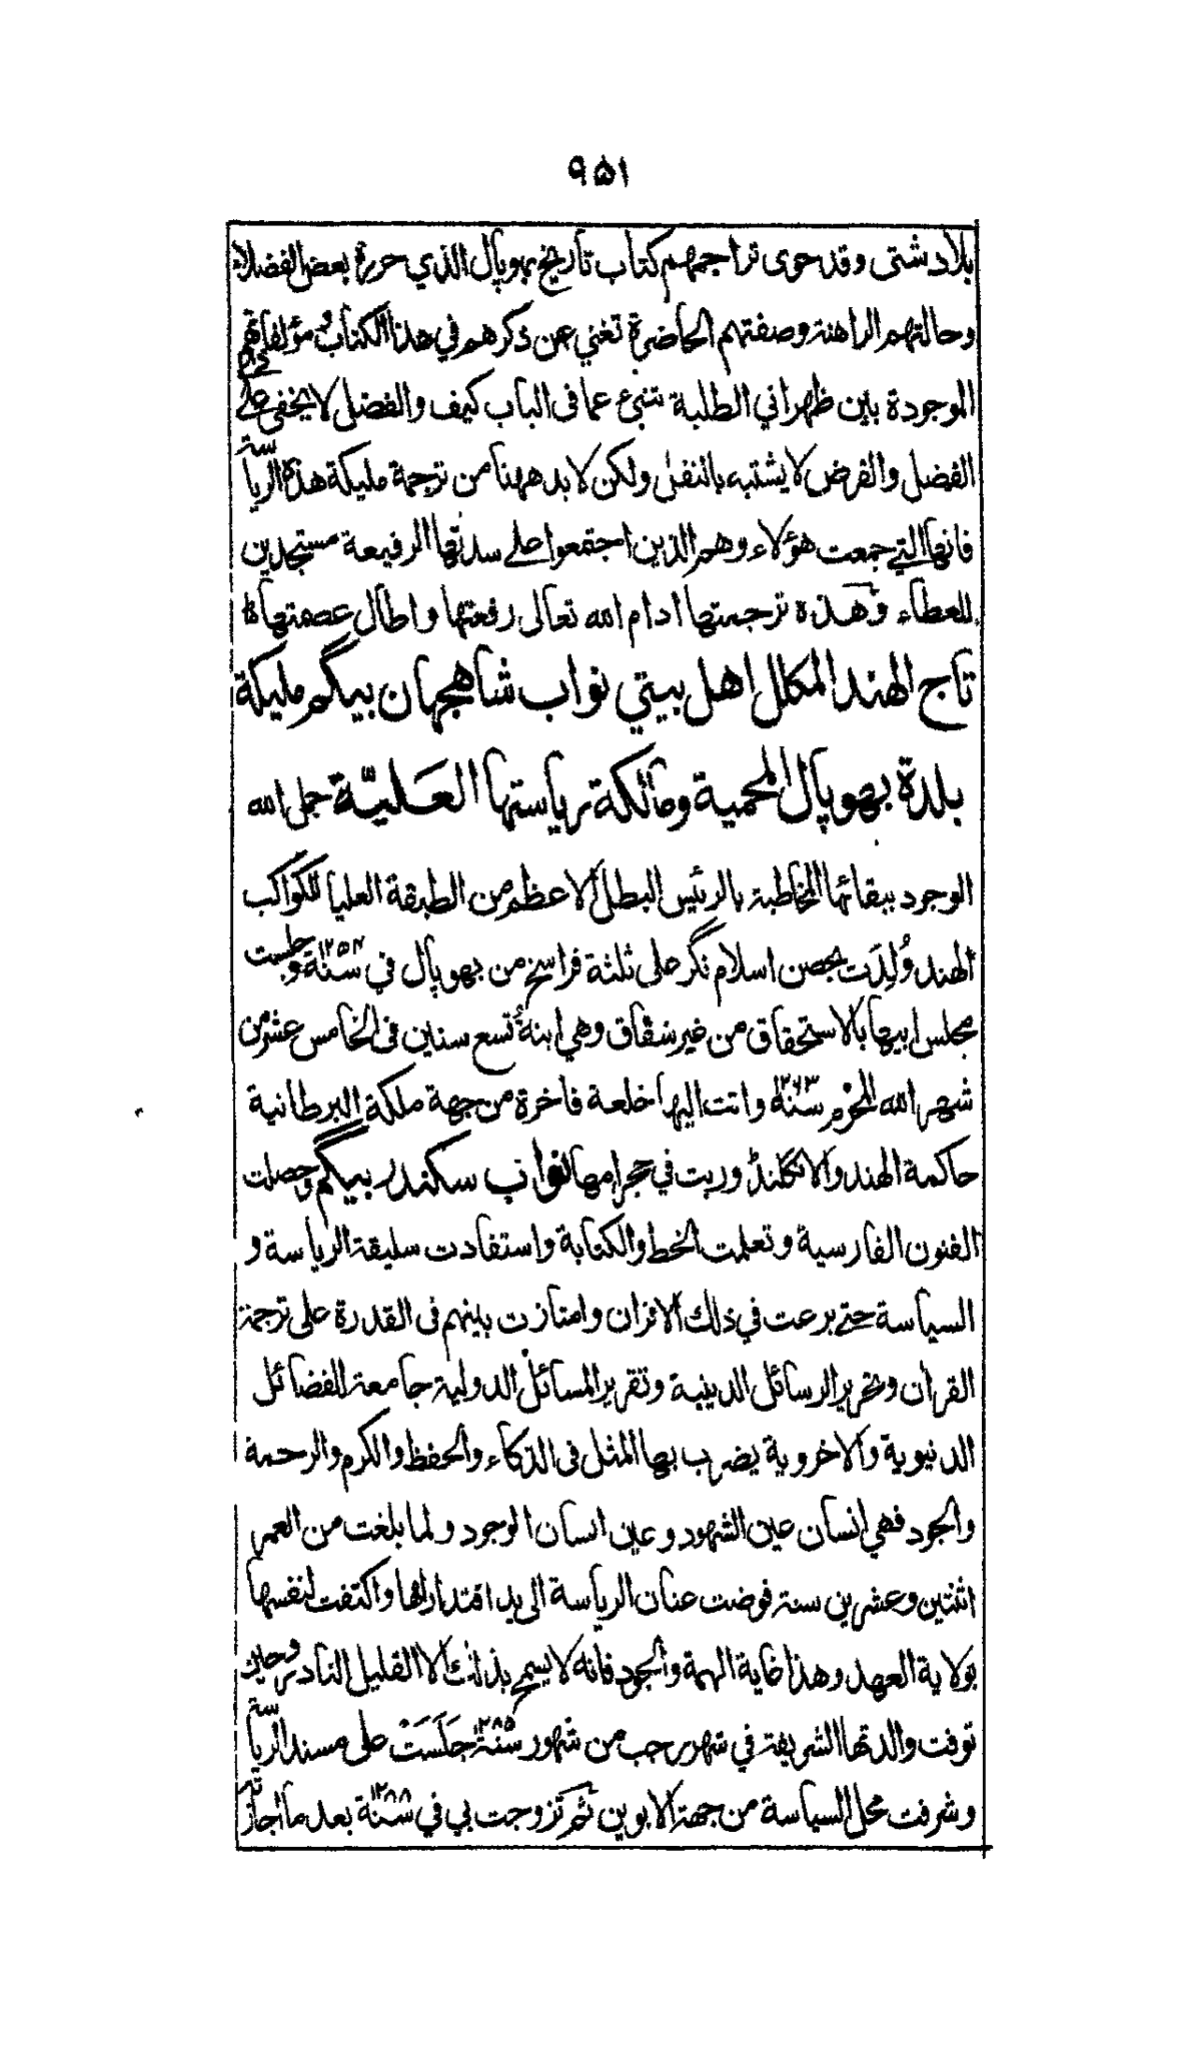 ٩٥١
بلاد شتى وقد حوى تراجمهم كتاب تاريخ بهوپال الذي حرره بعض الفضلاء
وحالتهم الراهنة وصفتهم الحاضرة تغني عن ذكرهم في هذا الكتاب و مؤلفاتهم
الموجودة بين ظهراني الطلبة تنبئ عما فى الباب كيف والفضل لا يخفى على ذوي
الفضل والفرض لا يشتبه بالنفل ولكن لا بد ههنا من ترجمة مليكة هذه الرياسة
فانها التي جمعت هؤلاء وهم الذين اجتمعوا على سدتها الرفيعة مستجدين
للعطاء وهذه ترجمتها ادام الله تعالى رفعتها واطال عصمتها
تاج الهند المكلل اهل بيتي نواب شاهجهان بيگم مليكة
بلدة بهوپال المحمية ومالكة رياستها العَليّة جمل الله
الوجود ببقائها المخاطبة بالرئيس البطل الاعظم من الطبقة العليا لكواكب
الهند وُلِدَت بحصن اسلام نگر على ثلثة فراسخ من بهوپال في سنة ١٢٥٤ وجلست
مجلس ابيها بالاستحقاق من غير شقاق وهي ابنة تسع سنين فى الخامس عشر من
شهر الله المحرم سنة ١٢٦٣ واتت اليها خلعة فاخرة من جهة ملكة البرطانية
حاكمة الهند والانگلنڈ وربت في حجر امها نواب سكندر بيگم وحصلت
الفنون الفارسية وتعلمت الخط والكتابة واستفادت سليقة الرياسة و
السياسة حتى برعت في ذلك الاقران وامتازت بينهم فى القدرة على ترجمة
القران وتحرير الرسائل الدينية وتقرير المسائل الدولية جامعة للفضائل
الدنيوية والاخروية يضرب بها المثل فى الذكاء والحفظ والكرم والرحمة
والجود فهي انسان عين الشهود وعين انسان الوجود ولما بلغت من العمر
اثنتين وعشرين سنة فوضت عنان الرياسة الى يد اقتدار امها واكتفت لنفسها
بولاية العهد وهذا غاية الهمة والجود فانه لا يسمح بذلك الا القليل النادر وحين
توفت والدتها الشريفة في شهر رجب من شهور سنة ١٢٨٥ جَلَسَتْ على مسند الرياسة
وشرفت محل السياسة من جهة الابوين ثم تزوجت بي في سنة ١٢٨٨ بعد ما اجازته